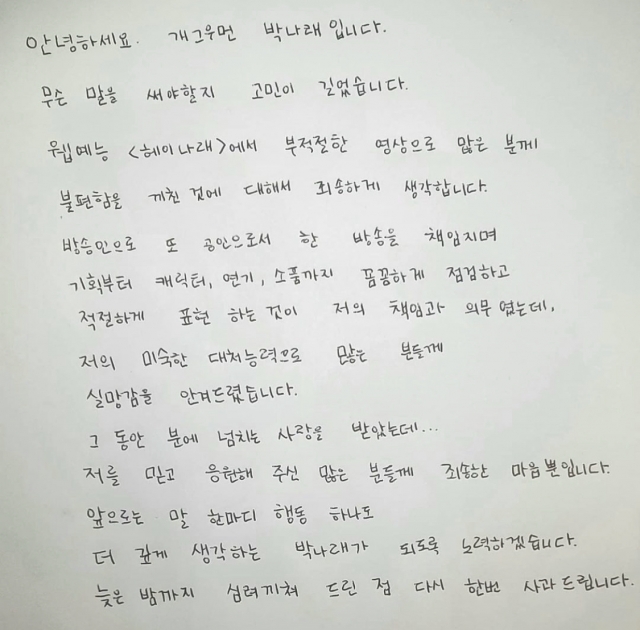 안녕하세요. 개그우먼 박나래입니다.
무슨 말을 써야할지 고민이 길었습니다.
웹예능 <헤이나래>에서 부적절한 영상으로 많은 분께
불편함을 끼친 것에 대해서 죄송하게 생각합니다.
방송인으로 또 공인으로서 한 방송을 책임지며
기획부터 캐릭터, 연기, 소품까지 꼼꼼하게 점검하고
적절하게 표현 하는 것이 저의 책임과 의무 였는데,
저의 미숙한 대처능력으로 많은 분들께
실망감을 안겨드렸습니다.
그 동안 분에 넘치는 사랑을 받았는데...
저를 믿고 응원해 주신 많은 분들께 죄송한 마음뿐입니다.
앞으로는 말 한마디 행동 하나도
더 깊게 생각하는 박나래가 되도록 노력하겠습니다.
늦은 밤까지 심려끼쳐 드린 점 다시 한번 사과드립니다.